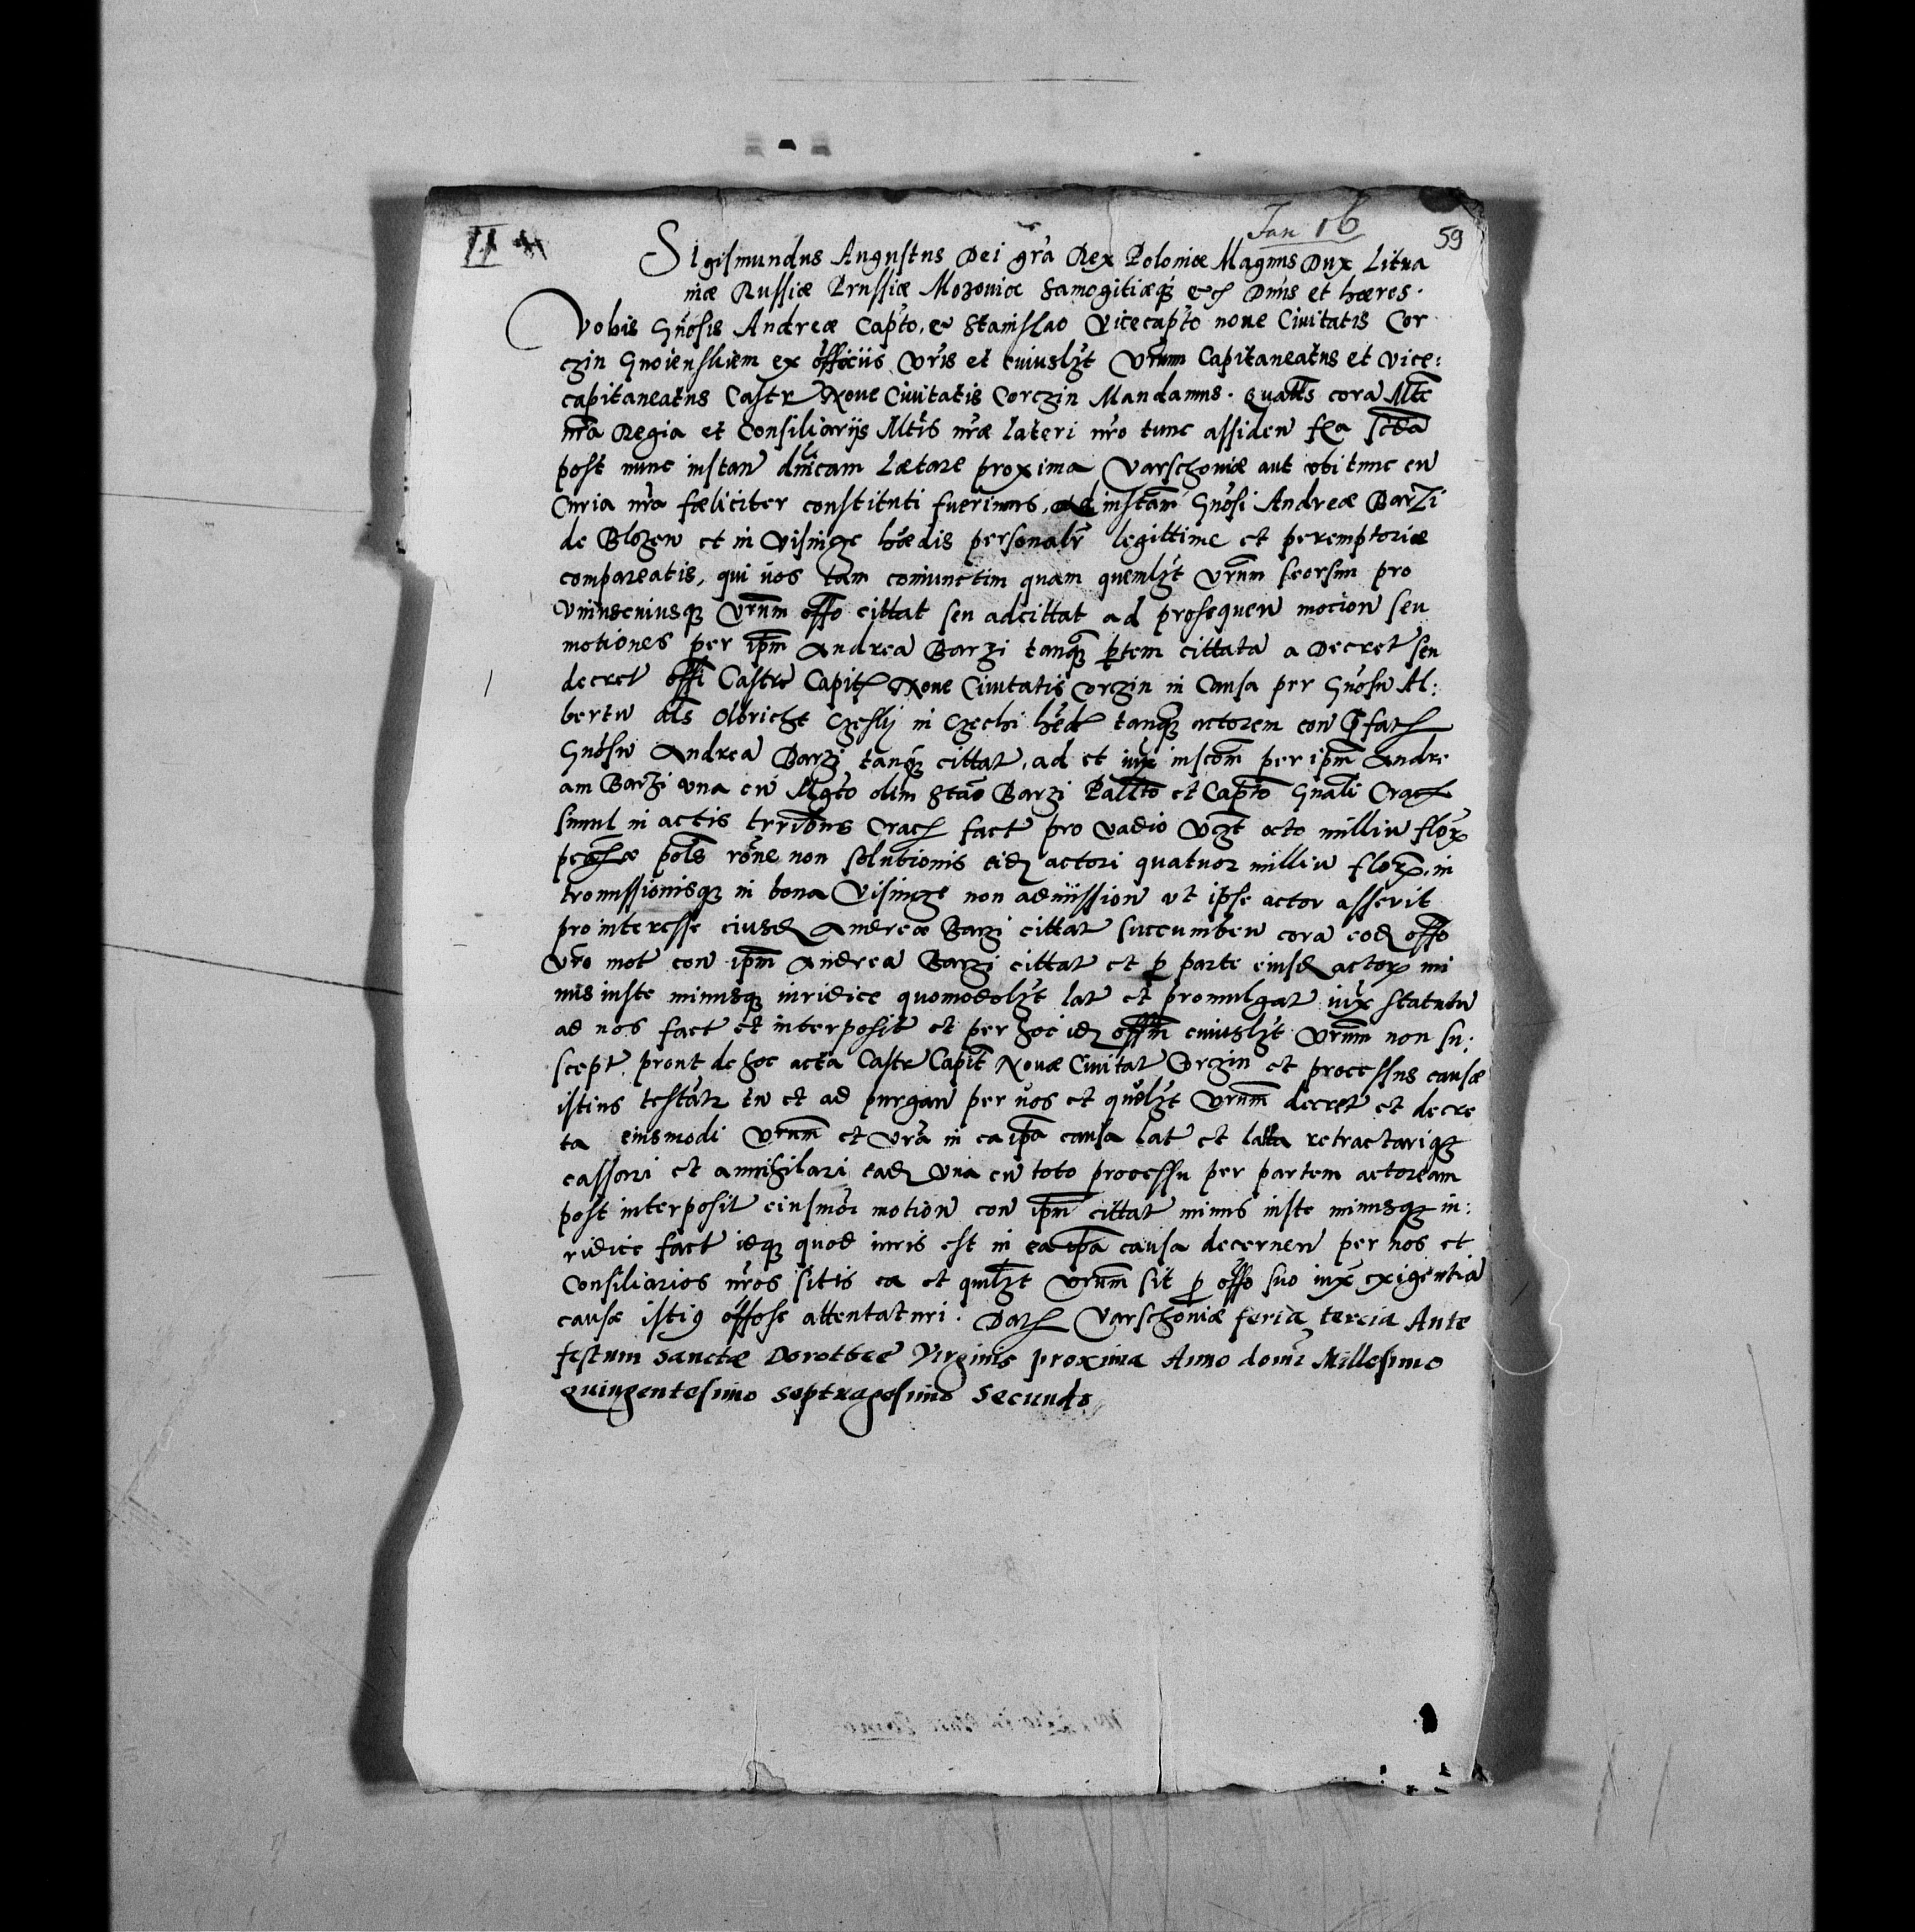 Jan 16
II
59
Sigismundus Augustus Dei gra Rex Poloniæ Magnus Dux Litua
niæ Russiæ Prussiæ Mozoviæ Samogitiæq; etc Dnus et hæres.
Vobis Gnosis Andreæ Capto, et Stanislao Vicecapto nove Civitatis Cor
czin Gnoienskiem ex officiis vris et cuiuslzt vrum Capitaneatus et vice:
capitaneatus Castr Nove Civitatis Corczin Mandamus. Quatts cora Mte
nra Regia et Consiliariis Mtis nræ lateri nro tunc assiden fra
post nunc instan dnicam Lætare proxima Varschoviæ aut ubi tunc cu
Curia nra fæliciter constituti fuerimus, ad instam Gnosi Andreæ Barzi
de Blozew et in Visnicze hædis personalr legittime et peremptorie
compareatis, qui vos tam coniunctim quam quemlzt vrum seorsim pro
uniuscuiusq; vrum offo cittat seu adcittat ad prosequen mocion seu
motiones per ipm Andrea Barzi tanq; ptem cittata a Decret seu
decret offi Castr Capit Nove Civitatis Corczin in Causa per Gnosu Al:
bertu als Olbricht in Czechi hæd tanq; actorem con pfat
Gnosu Andrea Barzi tanq; cittat, ad et iux inscom per ipm Andre
am Barzi una cu Mgco olim Stao Barzi Pallto et Capto Gnali Crac
simul in actis trribus Crac fact pro vadio vzt octo milliu flor
pols rone non solutionis eid actori quatuor milliu flor, in
tromissionisq; in bona Visnicze non admission ut ipse actor asserit
pro interesse eiusd Andreæ Barzi cittat succumben cora eod offo
vro mot con ipm Andrea Barzi cittat et p parte eiusd actor mi
nus iuste minusq; iuridice quomodolzt lat et promulgat iux statutu
ad nos fact et interposit et per hoc id offm cuiuslzt vrum non su:
scept. prout de hoc acta Castr Capit Novæ Civitat Corczin et processus causæ
istius testatr tu et ad purgan per vos et quelzt vrum decret et decre
ta eiusmodi vrum et vra in ea ipa causa lat et latta retractariq;
cassari et annihilari ead una cu toto processu per partem actoream
post interposit eiusmoi motion con ipm cittat minus iuste minusq; iu:
ridice fact idq; quod iuris est in ea ipa causa decernen per nos et
Consiliarios nros sitis ea et quilzt vrum sit p offo suo iux exigentia
causæ isti9 offose attentaturi. Dat Varschoviæ feria tercia Ante
festum Sanctæ Dorotheæ Virginis proxima Anno domi Millesimo
Quingentesimo Septuagesimo Secundo